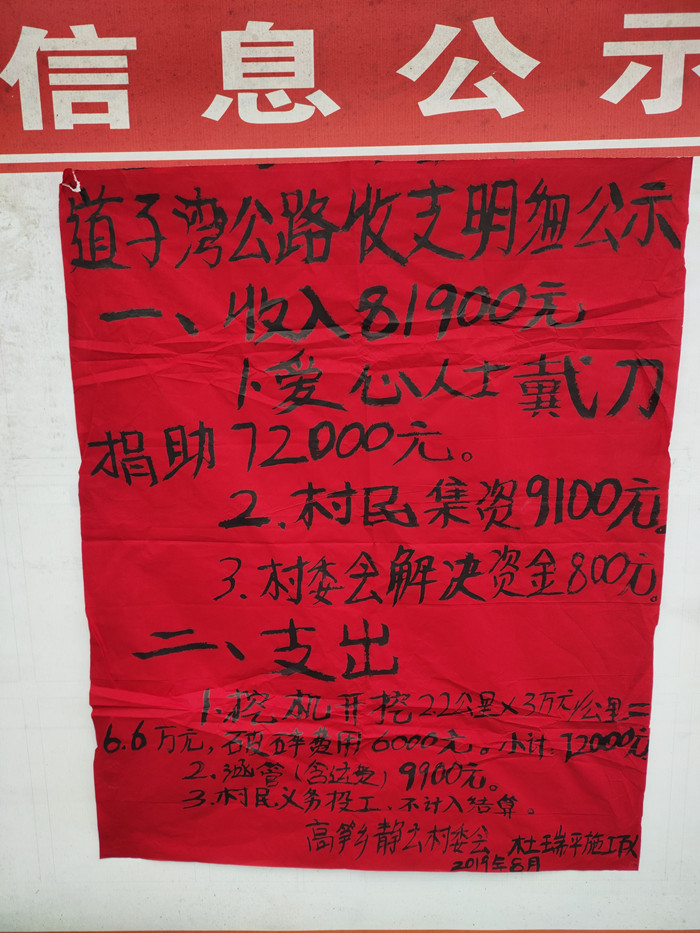 信息公示
道子湾公路收支明细公示
一、收入81900元
1.爱心人士戴刀
捐助72000元。
2.村民集资9100元。
3.村委会解决资金800元。
二、支出
1.挖机开挖2.2公里×3万元/公里=
6.6万元,破碎费用6000元。小计:72000元
2.涵管(含运费)9900元。
3.村民义务投工,不计入结算。
高笋乡静云村委会 杜瑞平施工队
2019年8月